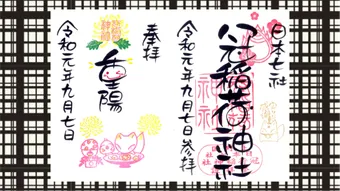 日本七社
冠稲荷神社
令和元年九月七日参拝
奉拝
重陽
令和元年九月七日